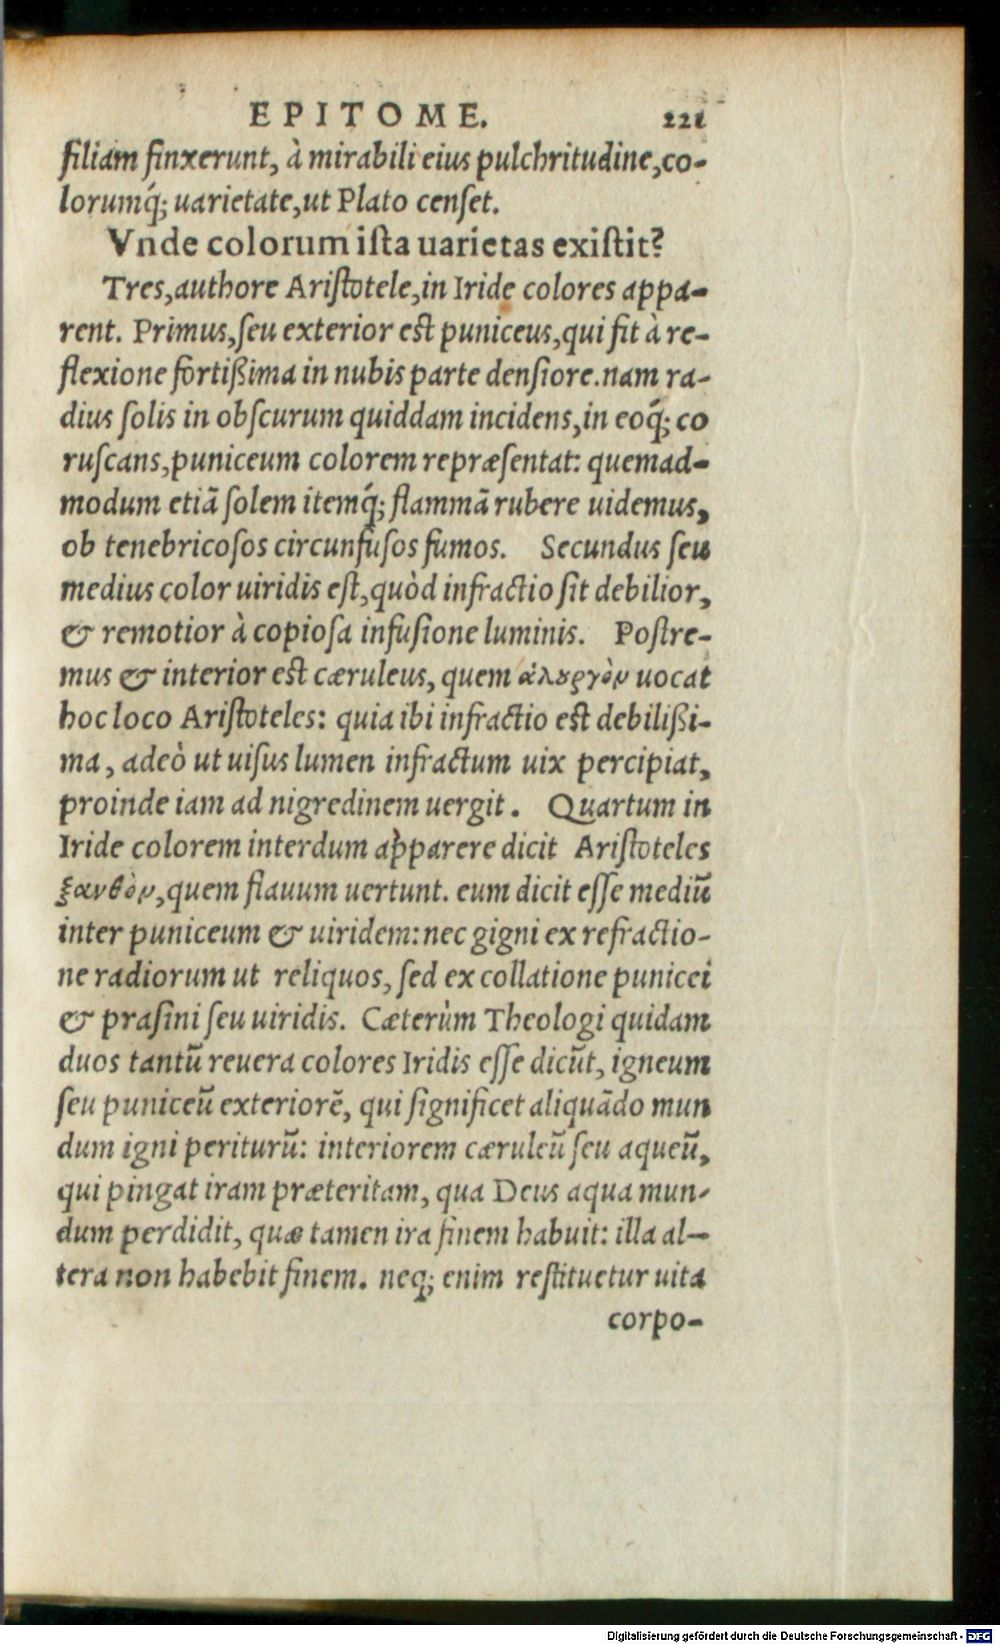 EPITOME. 221
filiam finxerunt, à mirabili eius pulchritudine, co-
lorumq́; uarietate, ut Plato censet.
Vnde colorum ista uarietas existit?
Tres, authore Aristotele, in Iride colores appa-
rent. Primus, seu exterior est puniceus, qui fit à re-
flexione fortißima in nubis parte densiore. nam ra-
dius solis in obscurum quiddam incidens, in eoq́; co
ruscans, puniceum colorem repræsentat: quemad-
modum etiā solem itemq́; flammā rubere uidemus,
ob tenebricosos circunfusos fumos. Secundus seu
medius color uiridis est, quòd infractio sit debilior,
& remotior à copiosa infusione luminis. Postre-
mus & interior est cæruleus, quem ἁλουργὸν uocat
hoc loco Aristoteles: quia ibi infractio est debilißi-
ma, adeò ut uisus lumen infractum uix percipiat,
proinde iam ad nigredinem uergit. Quartum in
Iride colorem interdum apparere dicit Aristoteles
ξανθὸν, quem flauum uertunt. eum dicit esse mediū
inter puniceum & uiridem: nec gigni ex refractio-
ne radiorum ut reliquos, sed ex collatione punicei
& prasini seu uiridis. Cæterùm Theologi quidam
duos tantū reuera colores Iridis esse dicūt, igneum
seu puniceū exteriorē, qui significet aliquādo mun
dum igni periturū: interiorem cæruleū seu aqueū,
qui pingat iram præteritam, qua Deus aqua mun-
dum perdidit, quæ tamen ira finem habuit: illa al-
tera non habebit finem. neq; enim restituetur uita
corpo-
Digitalisierung gefördert durch die Deutsche Forschungsgemeinschaft - DFG